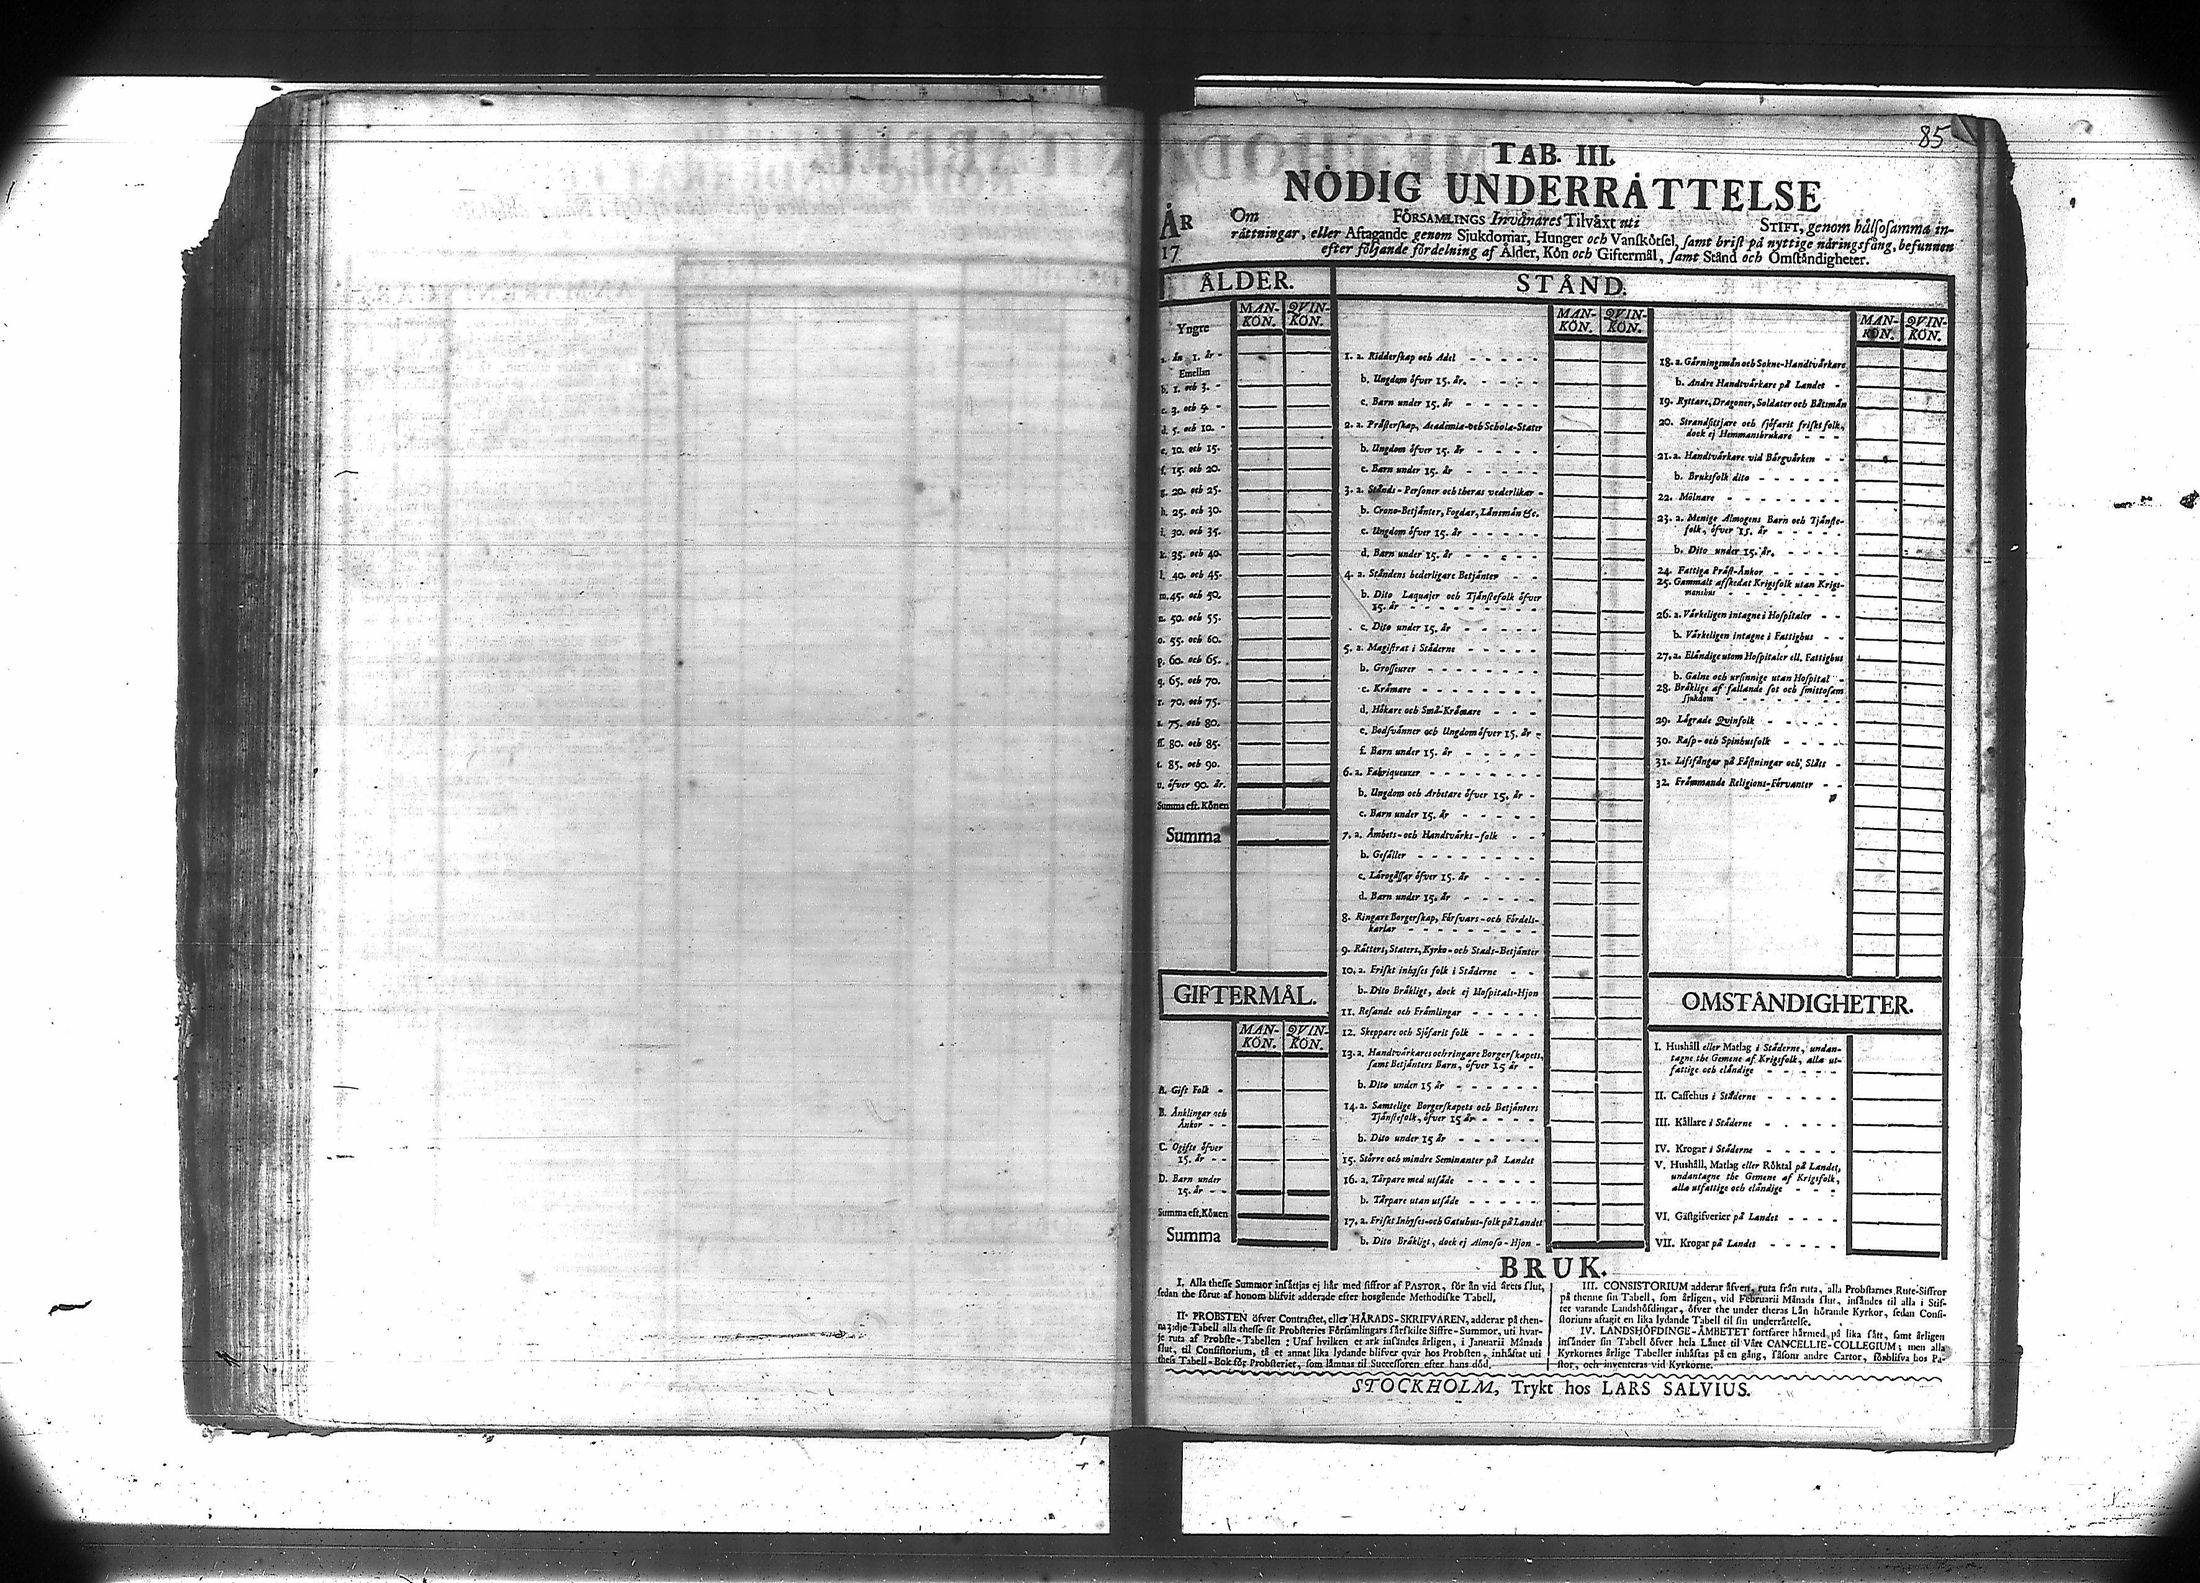 85
TAB. III.
NÖDIG UNDERRÅTTELSE
ÅR
17
Om FÖRSAMLINGS Invånares Tilväxt uti STIFT, genom hälsosamma in-
råttningar, eller Aftagande genom Sjukdomar, Hunger och Vanskötsel, samt brist på nyttige näringsfång, befunnen
efter följande fördelning af Ålder, Kön och Giftermål, samt Stånd och Omståndigheter.
ÅLDER.
MAN-KÖN. QVIN-KÖN.
Yngre
a. än 1. år -
Emellan
b. 1. och 3. -
c. 3. och 5. -
d. 5. och 10. -
e. 10. och 15.
f. 15. och 20.
g. 20. och 25.
h. 25. och 30.
i. 30. och 35.
k. 35. och 40.
l. 40. och 45.
m. 45. och 50.
n. 50. och 55.
o. 55. och 60.
p. 60. och 65.
q. 65. och 70.
r. 70. och 75.
s. 75. och 80.
ss. 80. och 85.
t. 85. och 90.
u. öfver 90. år.
Summa eft. Könen
Summa
GIFTERMÅL.
MAN-KÖN. QVIN-KÖN.
A. Gift Folk -
B. Änklingar och
Änkor - -
C. Ogifte öfver
15. år - -
D. Barn under
15. år - -
Summa eft. Könen
Summa
STÅND.
MAN-KÖN. QVIN-KÖN.
1. a. Ridderskap och Adel
b. Ungdom öfver 15. år.
c. Barn under 15. år
2. a. Prästerskap, Academia- och Schola-Stater
b. Ungdom öfver 15. år
c. Barn under 15. år
3. a. Stånds-Personer och theras vederlikar
b. Crono-Betjänter, Fogdar, Länsmän &c.
c. Ungdom öfver 15. år
d. Barn under 15. år
4. a. Ståndens hederligare Betjänter
b. Dito Laquajer och Tjänstefolk öfver
15. år
c. Dito under 15. år
5. a. Magistrat i Städerne
b. Grosseurer
c. Krämare
d. Hökare och Små-Krämare
e. Bodsvänner och Ungdom öfver 15. år
f. Barn under 15. år
6. a. Fabriqueurer
b. Ungdom och Arbetare öfver 15. år
c. Barn under 15. år
7. a. Ämbets- och Handtvärks-folk
b. Gesäller
c. Lärogåssar öfver 15. år
d. Barn under 15. år
8. Ringare Borgerskap, Försvars- och Fördels-
karlar
9. Rätters, Staters, Kyrko- och Stads-Betjänter
10. a. Friskt inhyses folk i Städerne
b. Dito Bräkligt, dock ej Hospitals-Hjon
11. Resande och Främlingar
12. Skeppare och Sjöfarit folk
13. a. Handtvärkares och ringare Borgerskapets,
samt Betjänters Barn, öfver 15 år
b. Dito under 15 år
14. a. Samtelige Borgerskapets och Betjänters
Tjänstefolk, öfver 15 år
b. Dito under 15 år
15. Större och mindre Seminanter på Landet
16. a. Tårpare med utsäde
b. Tårpare utan utsäde
17. a. Friskt Inhyses- och Gatuhus-folk på Landet
b. Dito Bräkligt, dock ej Almoso-Hjon
MAN-KÖN. QVIN-KÖN.
18. a. Gärningsmän och Sokne-Handtvärkare
b. Andre Handtvärkare på Landet
19. Ryttare, Dragoner, Soldater och Båtsmän
20. Strandsittjare och sjöfarit friskt folk,
dock ej Hemmansbrukare
21. a. Handtvärkare vid Bärgvärken
b. Bruksfolk dito
22. Mölnare
23. a. Menige Almogens Barn och Tjänste-
folk, öfver 15. år
b. Dito under 15. år.
24. Fattiga Präst-Änkor
25. Gammalt afskedat Krigsfolk utan Krigs-
manshus
26. a. Värkeligen intagne i Hospitaler
b. Värkeligen intagne i Fattighus
27. a. Eländige utom Hospitaler ell. Fattighus
b. Galne och ursinnige utan Hospital
28. Bräklige af fallande sot och smittosam
sjukdom
29. Lägrade Qvinfolk
30. Rasp- och Spinhusfolk
31. Lifsfångar på Fästningar och Slått
32. Främmande Religions-Förvanter
OMSTÅNDIGHETER.
I. Hushåll eller Matlag i Städerne, undan-
tagne the Gemene af Krigsfolk, alla ut-
fattige och eländige
II. Caffehus i Städerne
III. Källare i Städerne
IV. Krogar i Städerne
V. Hushåll, Matlag eller Röktal på Landet,
undantagne the Gemene af Krigsfolk,
alla utfattige och eländige
VI. Gästgifverier på Landet
VII. Krogar på Landet
BRUK.
I. Alla thesse Summor insättjas ej här med siffror af PASTOR, för än vid årets slut,
sedan the förut af honom blifvit adderade efter hosgående Methodiske Tabell.
II. PROBSTEN öfver Contractet, eller HÄRADS-SKRIFVAREN, adderar på then-
na 3:dje Tabell alla thesse sit Probsteries Församlingars särskilte Siffre-Summor, uti hvar-
je ruta af Probste-Tabellen; Utaf hvilken et ark insändes årligen, i Januarii Månads
slut, til Consistorium, tå et annat lika lydande blifver qvar hos Probsten, inhäftat uti
theſs Tabell-Bok för Probsteriet, som lämnas til Successoren efter hans död.
III. CONSISTORIUM adderar äfven, ruta från ruta, alla Probstarnes Rute-Siffror
på thenne sin Tabell, som årligen, vid Februarii Månads slut, insändes til alla i Stif-
tet varande Landshöfdingar, öfver the under theras Län hörande Kyrkor, sedan Consi-
storium aftagit en lika lydande Tabell til sin underrättelse.
IV. LANDSHÖFDINGE-ÄMBETET fortfarer härmed på lika sätt, samt årligen
insänder sin Tabell öfver hela Länet til Vårt CANCELLIE-COLLEGIUM; men alla
Kyrkornes årlige Tabeller inhäftas på en gång, såsom andre Cartor, förblifva hos Pa-
stor, och inventeras vid Kyrkorne.
STOCKHOLM, Trykt hos LARS SALVIUS.